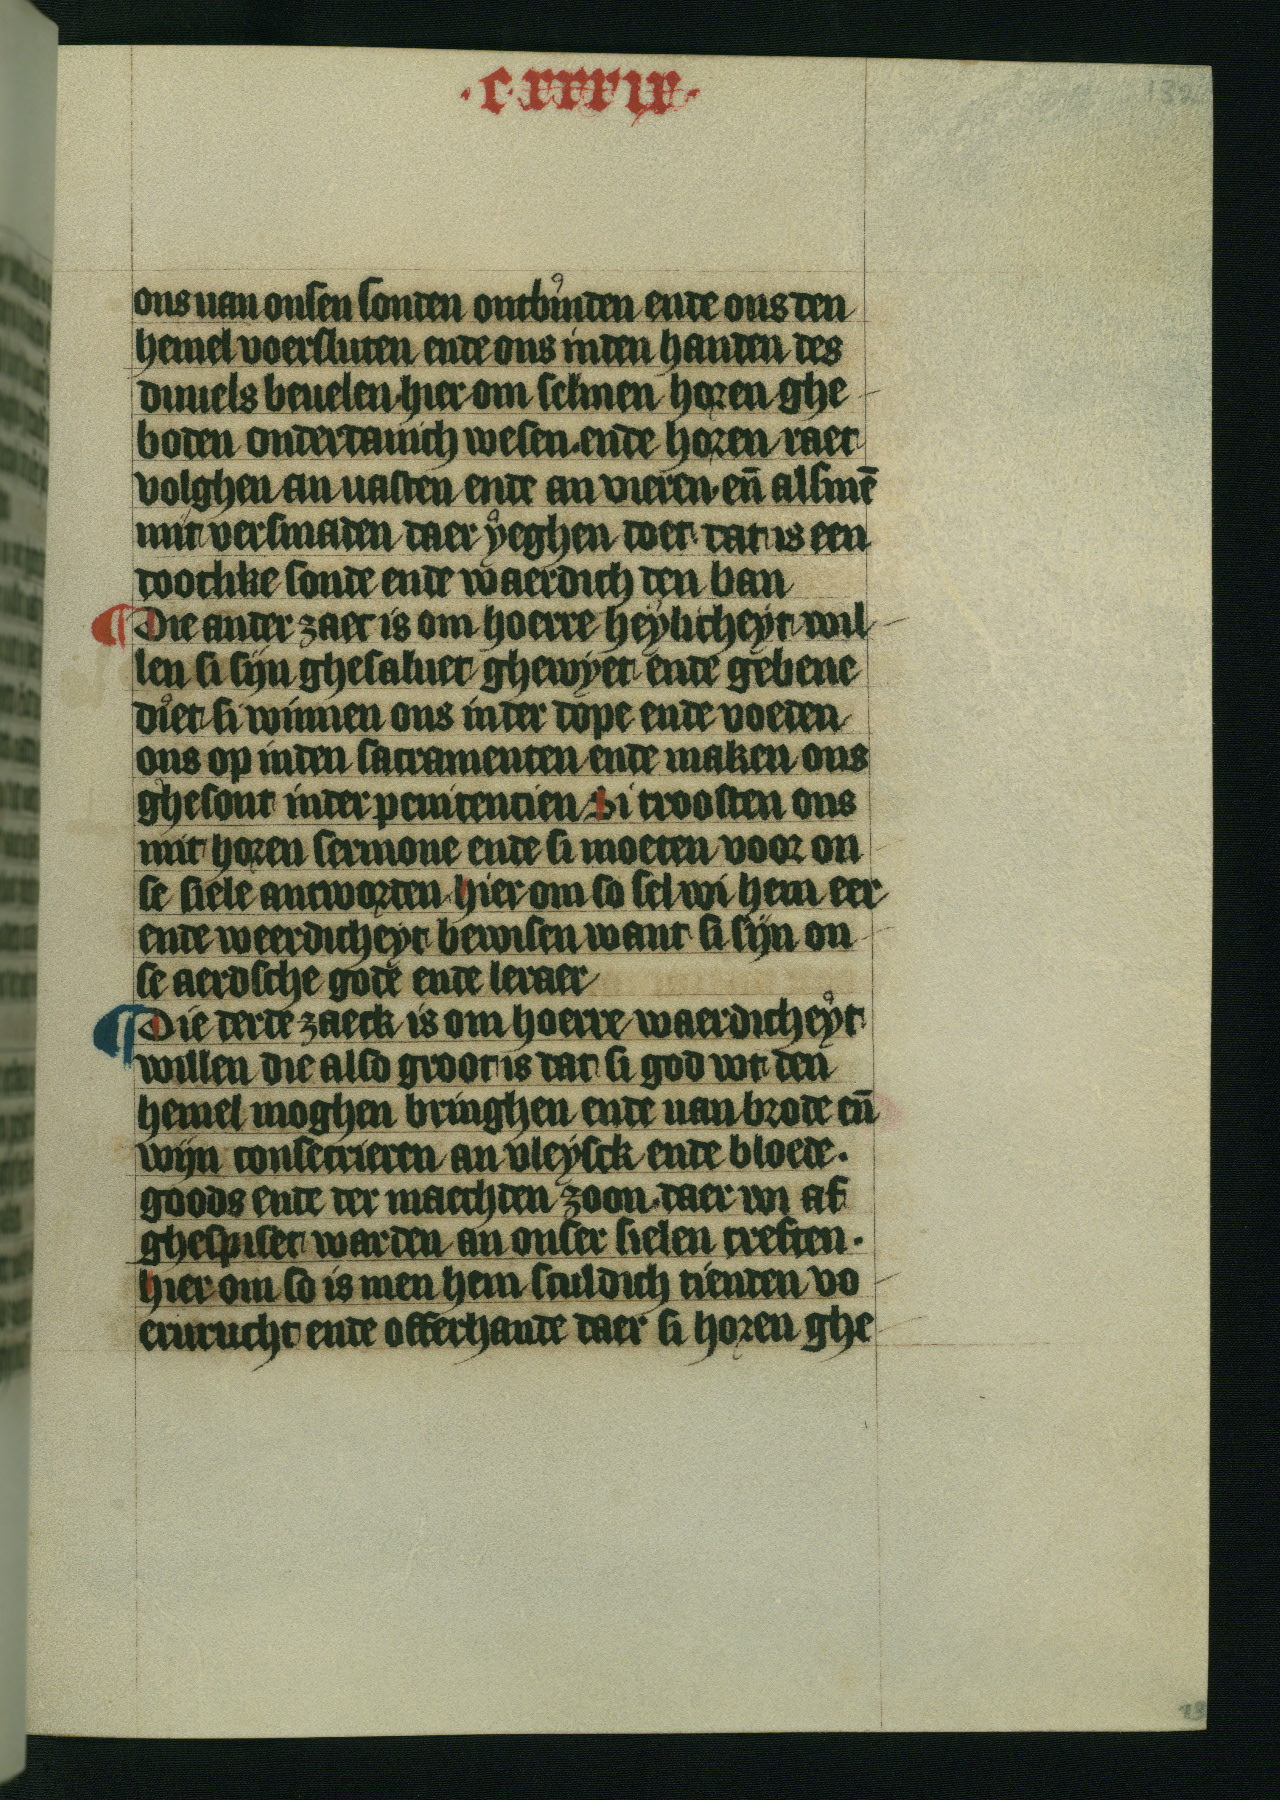 ·c·xxxix·
ons uan onsen sonden ontbinden ende ons den
hemel voersluten ende ons inden handen des
duuels beuelen·hier om selmen horen ghe
boden onderdanich wesen·ende horen raet
volghen an uasten ende an vieren·en̄ alsmē
mit versmaden daer yeghen doet dat is een
dootlike sonde ende waerdich den ban
¶ Die ander zaet is om hoerre heylicheyt wil
len si sijn ghesaluet ghewyet ende gebene
diet si winnen ons inder dope ende voeden
ons op inden sacramenten ende maken ons
ghesont inder penitencien Si troosten ons
mit horen sermone ende si moeten voor on
se siele antworden·hier om so sel wi hem eer
ende weerdicheyt bewisen want si sijn on
se aerdsche gode ende leraer
¶ Die derde zaeck is om hoerre waerdicheyt
willen die also groot is dat si god wt den
hemel moghen bringhen ende uan brode en̄
wijn consecrieren an vleysck ende bloede·
goods ende der maechden zoon·daer wi af
ghespiset warden an onser sielen creften·
hier om so is men hem sculdich tienden vo
ervrucht ende offerhande daer si horen ghe